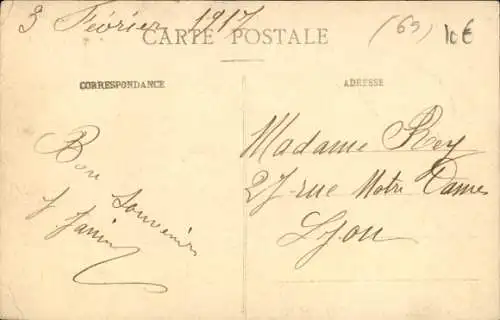 3 Février 1917
(69)
10€
CARTE POSTALE
CORRESPONDANCE
ADRESSE
Bon
Souvenir
Madame Rey
27 rue Notre Dames
Lyon